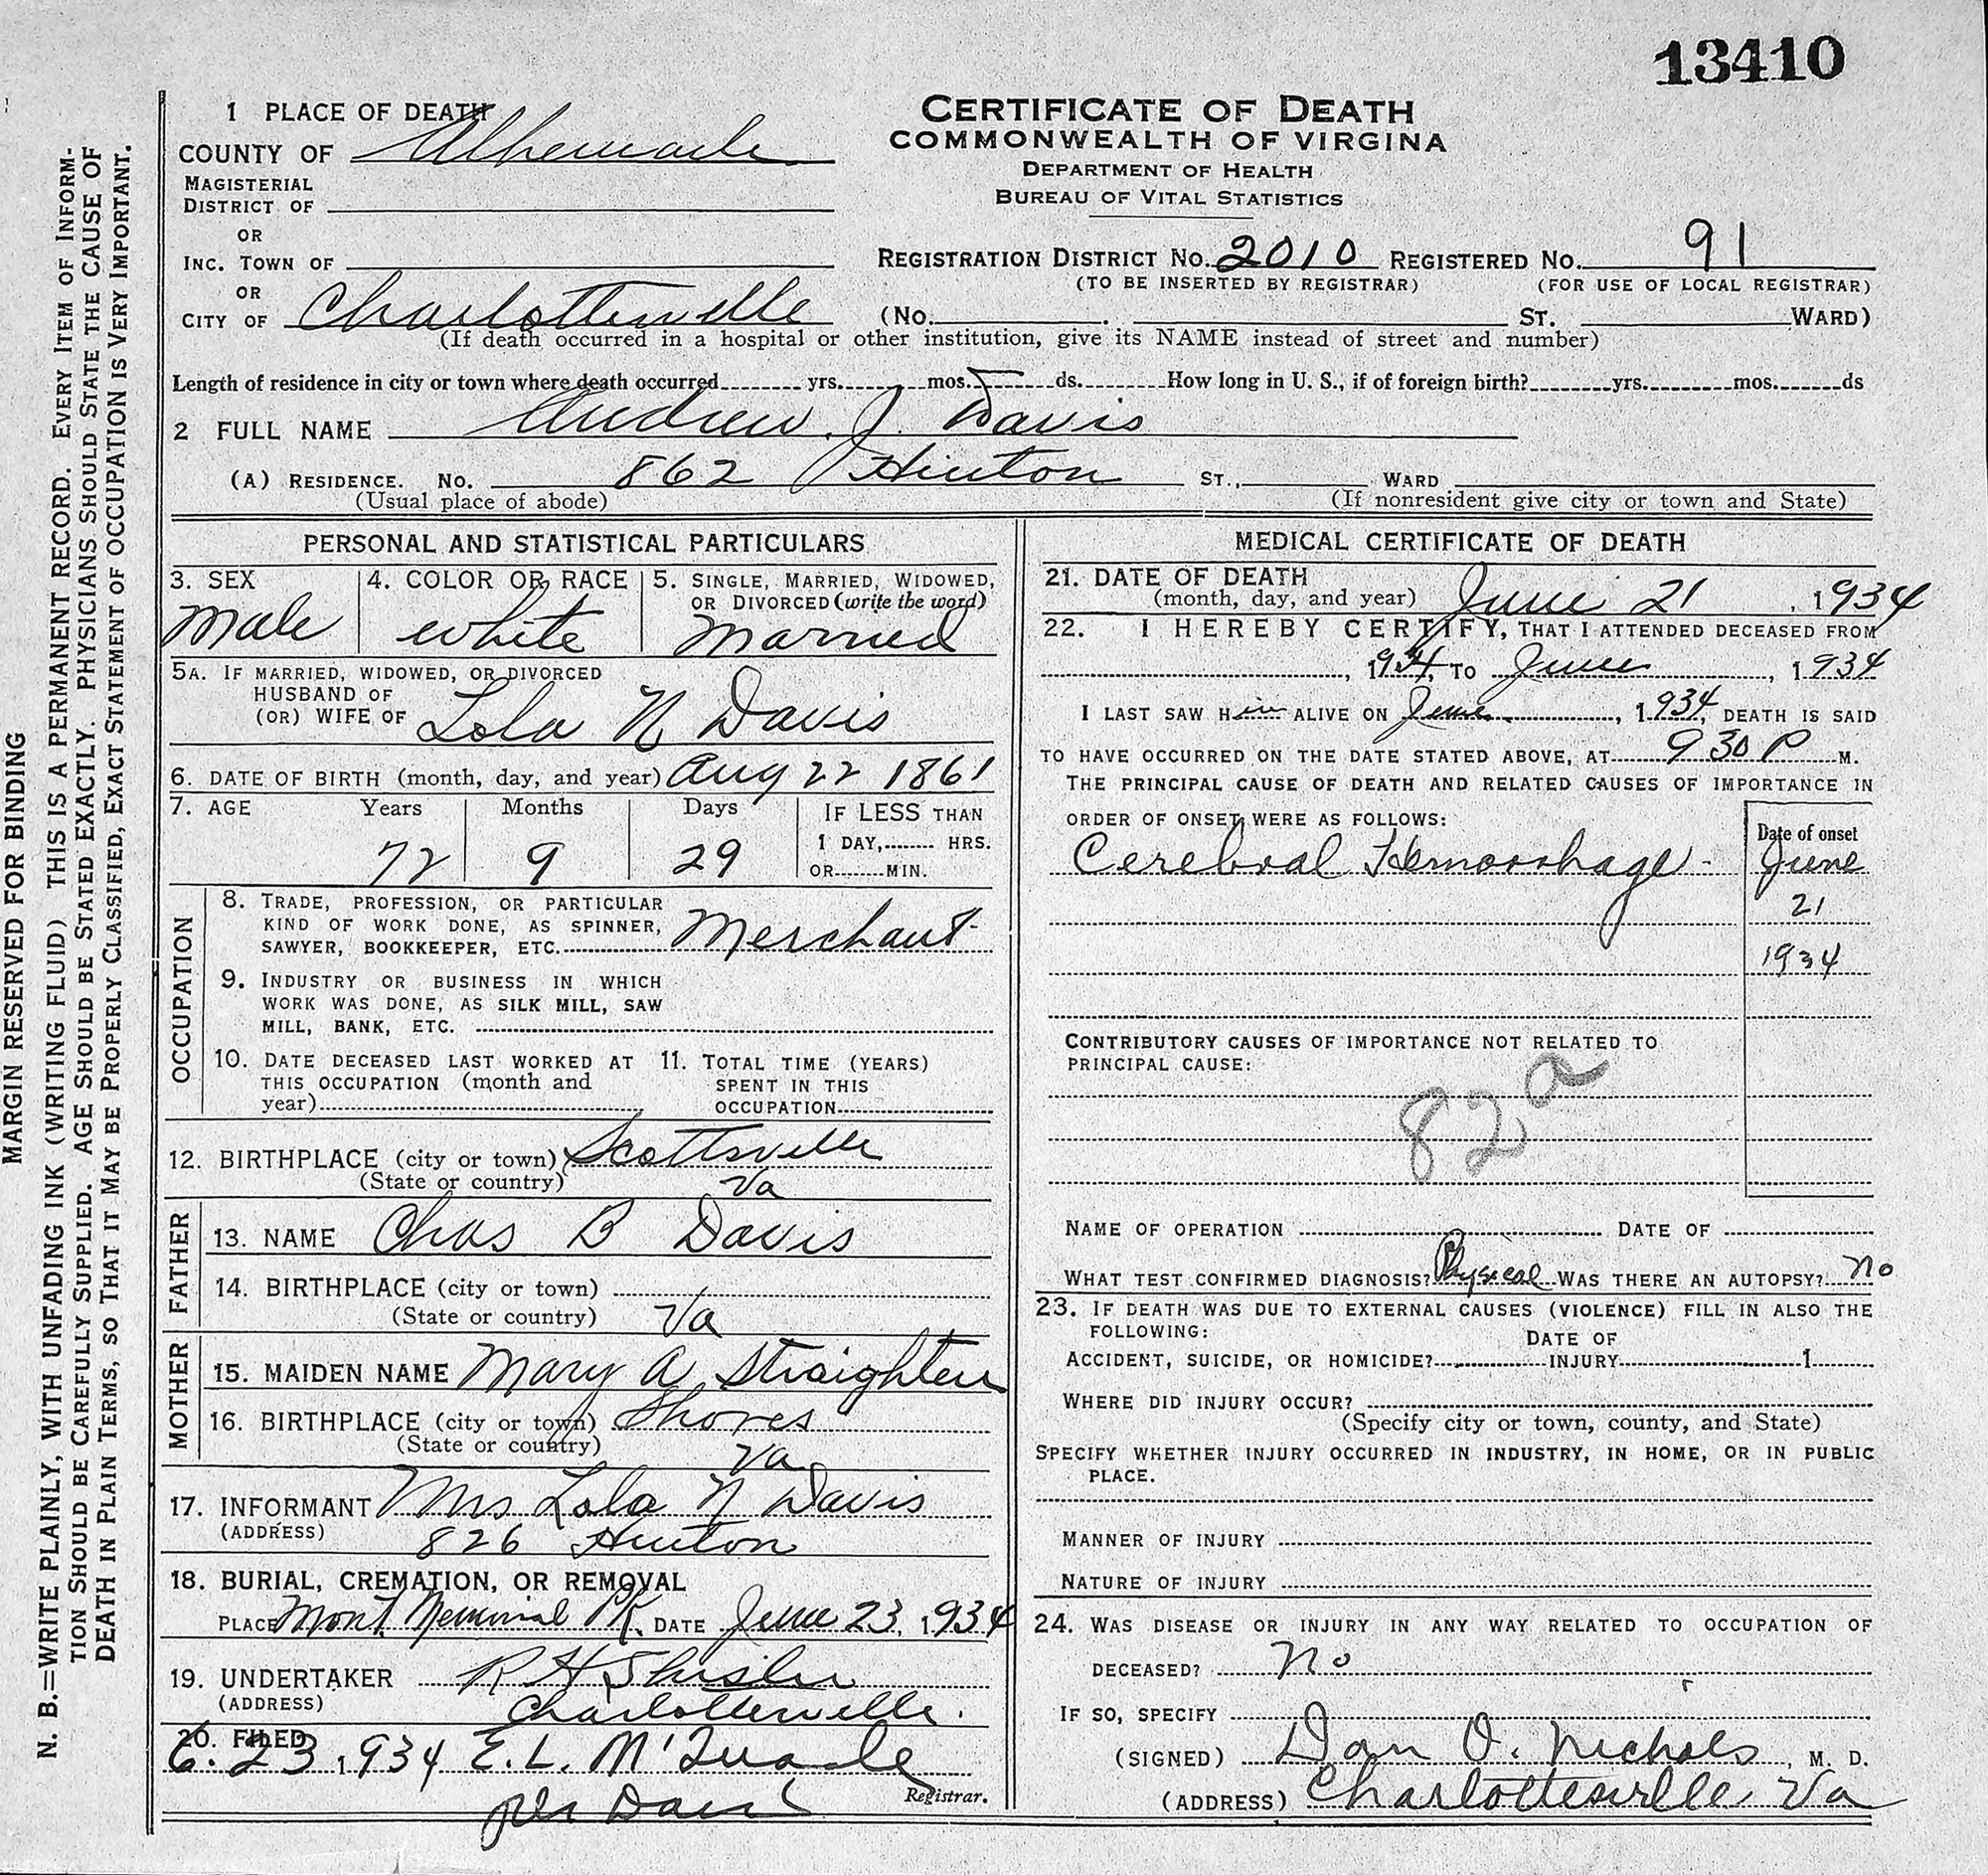 13410
CERTIFICATE OF DEATH
COMMONWEALTH OF VIRGINIA
DEPARTMENT OF HEALTH
BUREAU OF VITAL STATISTICS
1 PLACE OF DEATH
COUNTY OF Albemarle
MAGISTERIAL
DISTRICT OF
OR
INC. TOWN OF
REGISTRATION DISTRICT NO. 2010 REGISTERED NO. 91
(TO BE INSERTED BY REGISTRAR) (FOR USE OF LOCAL REGISTRAR)
OR
CITY OF Charlottesville (NO. ST. WARD)
(If death occurred in a hospital or other institution, give its NAME instead of street and number)
Length of residence in city or town where death occurred yrs. mos. ds. How long in U. S., if of foreign birth? yrs. mos. ds
2 FULL NAME Andrew J. Davis
(A) RESIDENCE. NO. 862 Hinton ST., WARD
(Usual place of abode) (If nonresident give city or town and State)
PERSONAL AND STATISTICAL PARTICULARS
3. SEX 4. COLOR OR RACE 5. SINGLE, MARRIED, WIDOWED,
OR DIVORCED (write the word)
Male white Married
5A. IF MARRIED, WIDOWED, OR DIVORCED
HUSBAND OF
(OR) WIFE OF Lola N Davis
6. DATE OF BIRTH (month, day, and year) Aug 22 1861
7. AGE Years Months Days IF LESS THAN
1 DAY, HRS.
72 9 29 OR MIN.
OCCUPATION
8. TRADE, PROFESSION, OR PARTICULAR
KIND OF WORK DONE, AS SPINNER,
SAWYER, BOOKKEEPER, ETC. Merchant
9. INDUSTRY OR BUSINESS IN WHICH
WORK WAS DONE, AS SILK MILL, SAW
MILL, BANK, ETC.
10. DATE DECEASED LAST WORKED AT 11. TOTAL TIME (YEARS)
THIS OCCUPATION (month and SPENT IN THIS
year) OCCUPATION
12. BIRTHPLACE (city or town) Scottsville
(State or country) Va
FATHER
13. NAME Chas B Davis
14. BIRTHPLACE (city or town)
(State or country) Va
MOTHER
15. MAIDEN NAME Mary A Straighten
16. BIRTHPLACE (city or town) Shores
(State or country) Va
17. INFORMANT Mrs Lola N Davis
(ADDRESS) 826 Hinton
18. BURIAL, CREMATION, OR REMOVAL
PLACE Mont Memorial Pk. DATE June 23, 1934
19. UNDERTAKER R H Shisler
(ADDRESS) Charlottesville.
20. FILED
6. 23, 1934 E. L. McQuade
Registrar.
per Davis
MEDICAL CERTIFICATE OF DEATH
21. DATE OF DEATH
(month, day, and year) June 21, 1934
22. I HEREBY CERTIFY, THAT I ATTENDED DECEASED FROM
, 1934, TO June, 1934
I LAST SAW Him ALIVE ON June, 1934, DEATH IS SAID
TO HAVE OCCURRED ON THE DATE STATED ABOVE, AT 9 30 P M.
THE PRINCIPAL CAUSE OF DEATH AND RELATED CAUSES OF IMPORTANCE IN
ORDER OF ONSET WERE AS FOLLOWS: Date of onset
Cerebral Hemorrhage - June
21
1934
CONTRIBUTORY CAUSES OF IMPORTANCE NOT RELATED TO
PRINCIPAL CAUSE:
82 a
NAME OF OPERATION DATE OF
WHAT TEST CONFIRMED DIAGNOSIS? Physical WAS THERE AN AUTOPSY? No
23. IF DEATH WAS DUE TO EXTERNAL CAUSES (VIOLENCE) FILL IN ALSO THE
FOLLOWING:
DATE OF
ACCIDENT, SUICIDE, OR HOMICIDE? INJURY 1
WHERE DID INJURY OCCUR?
(Specify city or town, county, and State)
SPECIFY WHETHER INJURY OCCURRED IN INDUSTRY, IN HOME, OR IN PUBLIC
PLACE.
MANNER OF INJURY
NATURE OF INJURY
24. WAS DISEASE OR INJURY IN ANY WAY RELATED TO OCCUPATION OF
DECEASED? No
IF SO, SPECIFY
(SIGNED) Dan O. Nichols, M. D.
(ADDRESS) Charlottesville Va
MARGIN RESERVED FOR BINDING
N. B.=WRITE PLAINLY, WITH UNFADING INK (WRITING FLUID) THIS IS A PERMANENT RECORD. EVERY ITEM OF INFORM-
TION SHOULD BE CAREFULLY SUPPLIED. AGE SHOULD BE STATED EXACTLY. PHYSICIANS SHOULD STATE THE CAUSE OF
DEATH IN PLAIN TERMS, SO THAT IT MAY BE PROPERLY CLASSIFIED, EXACT STATEMENT OF OCCUPATION IS VERY IMPORTANT.